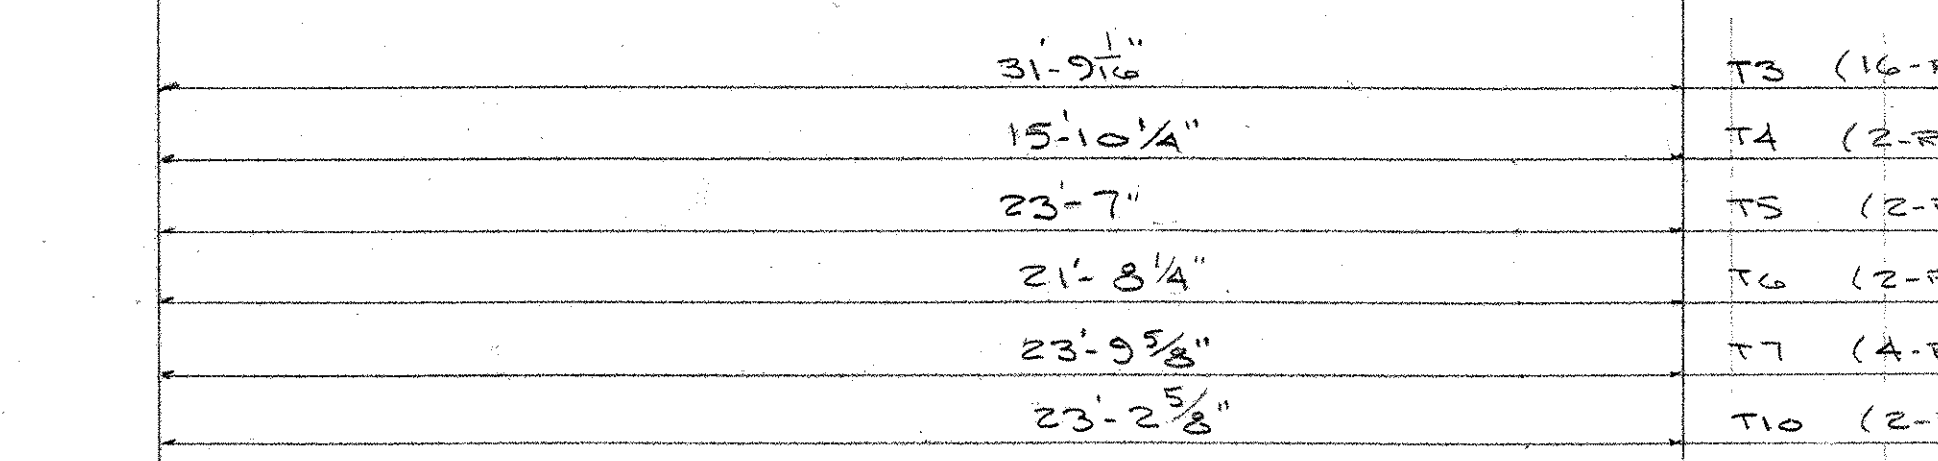 31'-9 1/16" T3 (16-R
15'-10 1/4" T4 (2-R
23'-7" T5 (2-
21'-8 1/4" T6 (2-R
23'-9 5/8" T7 (4-R
23'-2 5/8" T10 (2-